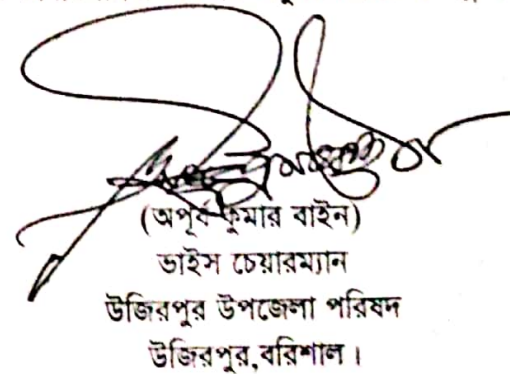 (অপূর্ব কুমার বাইন)
ভাইস চেয়ারম্যান
উজিরপুর উপজেলা পরিষদ
উজিরপুর,বরিশাল।